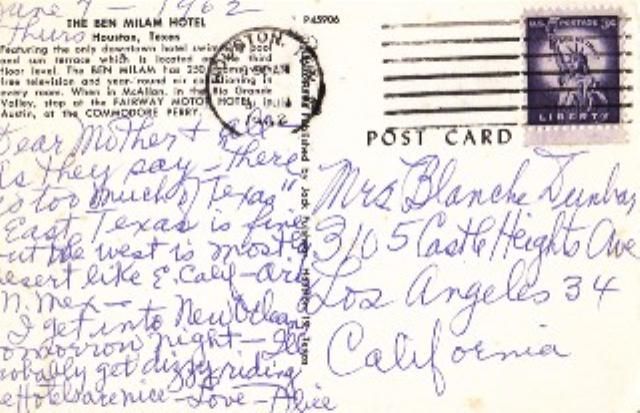 June 7 - 1962
Thurs
THE BEN MILAM HOTEL
Houston, Texas
Featuring the only downtown hotel swimming pool
and sun terrace which is located on the third
floor level. The BEN MILAM has 250 rooms with
free television and year-round air conditioning in
every room. When in McAllen, in the Rio Grande
Valley, stop at the FAIRWAY MOTOR HOTEL, in
Austin, at the COMMODORE PERRY.
P45906
HOUSTON,
1962
U.S. POSTAGE 3¢
LIBERTY
POST CARD
Dear Mother & all -
As they say - "There
is too much of Texas"
East Texas is fine
but the west is mostly
desert like E. Calif - Ariz
N. Mex -
I get into New Orleans
tomorrow night - I'll
probably get dizzy riding
Hotels are nice - Love - Alice
Mrs Blanche Dunbar
3105 Castle Heights Ave
Los Angeles 34
California